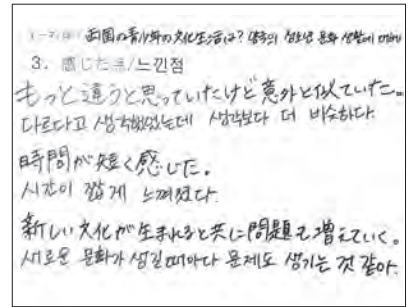 両国の青少年の文化生活は? 양국의 청소년 문화 생활에 대하여
3. 感じた点/느낀점
もっと違うと思っていたけど意外と似ていた。
다르다고 생각했었는데 생각보다 더 비슷하다.
時間が短く感じた。
시간이 짧게 느껴졌다.
新しい文化が生まれると共に問題も増えていく。
새로운 문화가 생길때마다 문제도 생기는 것 같아.